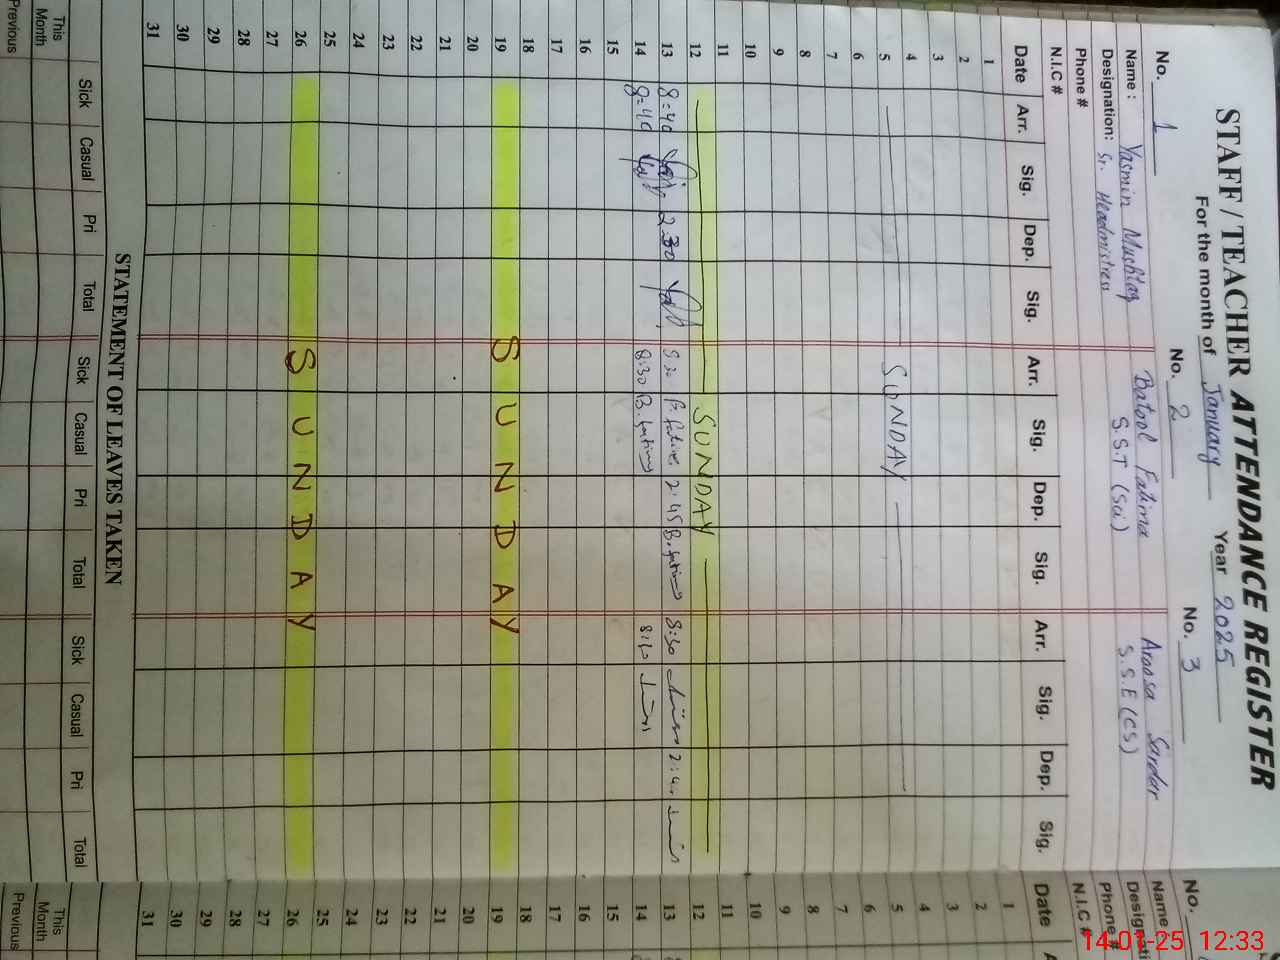 STAFF / TEACHER ATTENDANCE REGISTER
For the month of January Year 2025
No. 1 No. 2 No. 3 No.
Name : Yasmin Mushtaq Batool Fatima Aroosa Sardar Name
Designation: Sr. Headmistress S.S.T (Sci) S.S.E (CS) Designati
Phone # Phone #
N.I.C # N.I.C #
Date Arr. Sig. Dep. Sig. Arr. Sig. Dep. Sig. Arr. Sig. Dep. Sig. Date A
1 1
2 2
3 3
4 4
5 SUNDAY 5
6 6
7 7
8 8
9 9
10 10
11 11
12 SUNDAY 12
13 8:40 2:30 B. fatima 2:45 B. fatima 8:30 13
14 8:40 8:30 B. fatima 14
15 15
16 16
17 17
18 18
19 SUNDAY 19
20 20
21 21
22 22
23 23
24 24
25 25
26 SUNDAY 26
27 27
28 28
29 29
30 30
31 31
STATEMENT OF LEAVES TAKEN
Sick Casual Pri Total Sick Casual Pri Total Sick Casual Pri Total
This Month This Month
Previous Previous
14-01-25 12:33